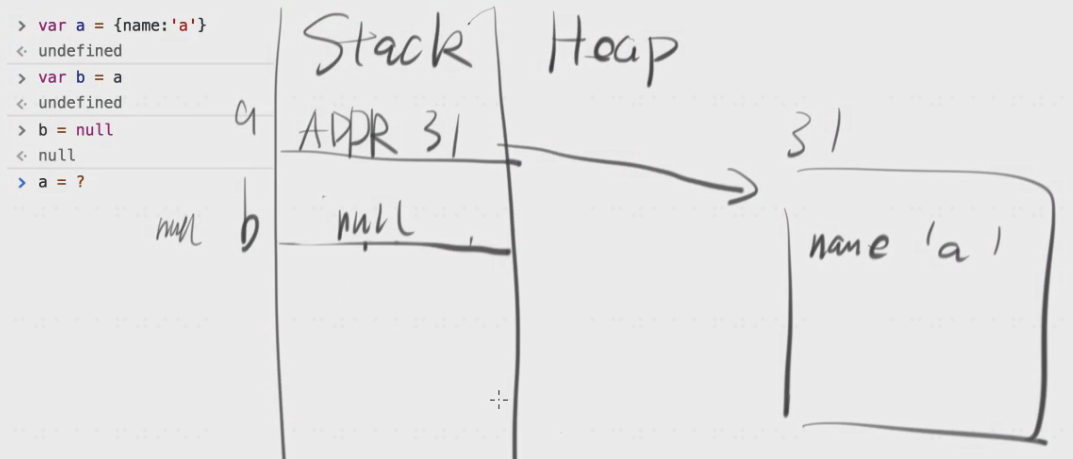 > var a = {name:'a'}
<· undefined
> var b = a
<· undefined
> b = null
<· null
> a = ?
Stack Heap
a ADDR 31
31
null b null
name 'a'